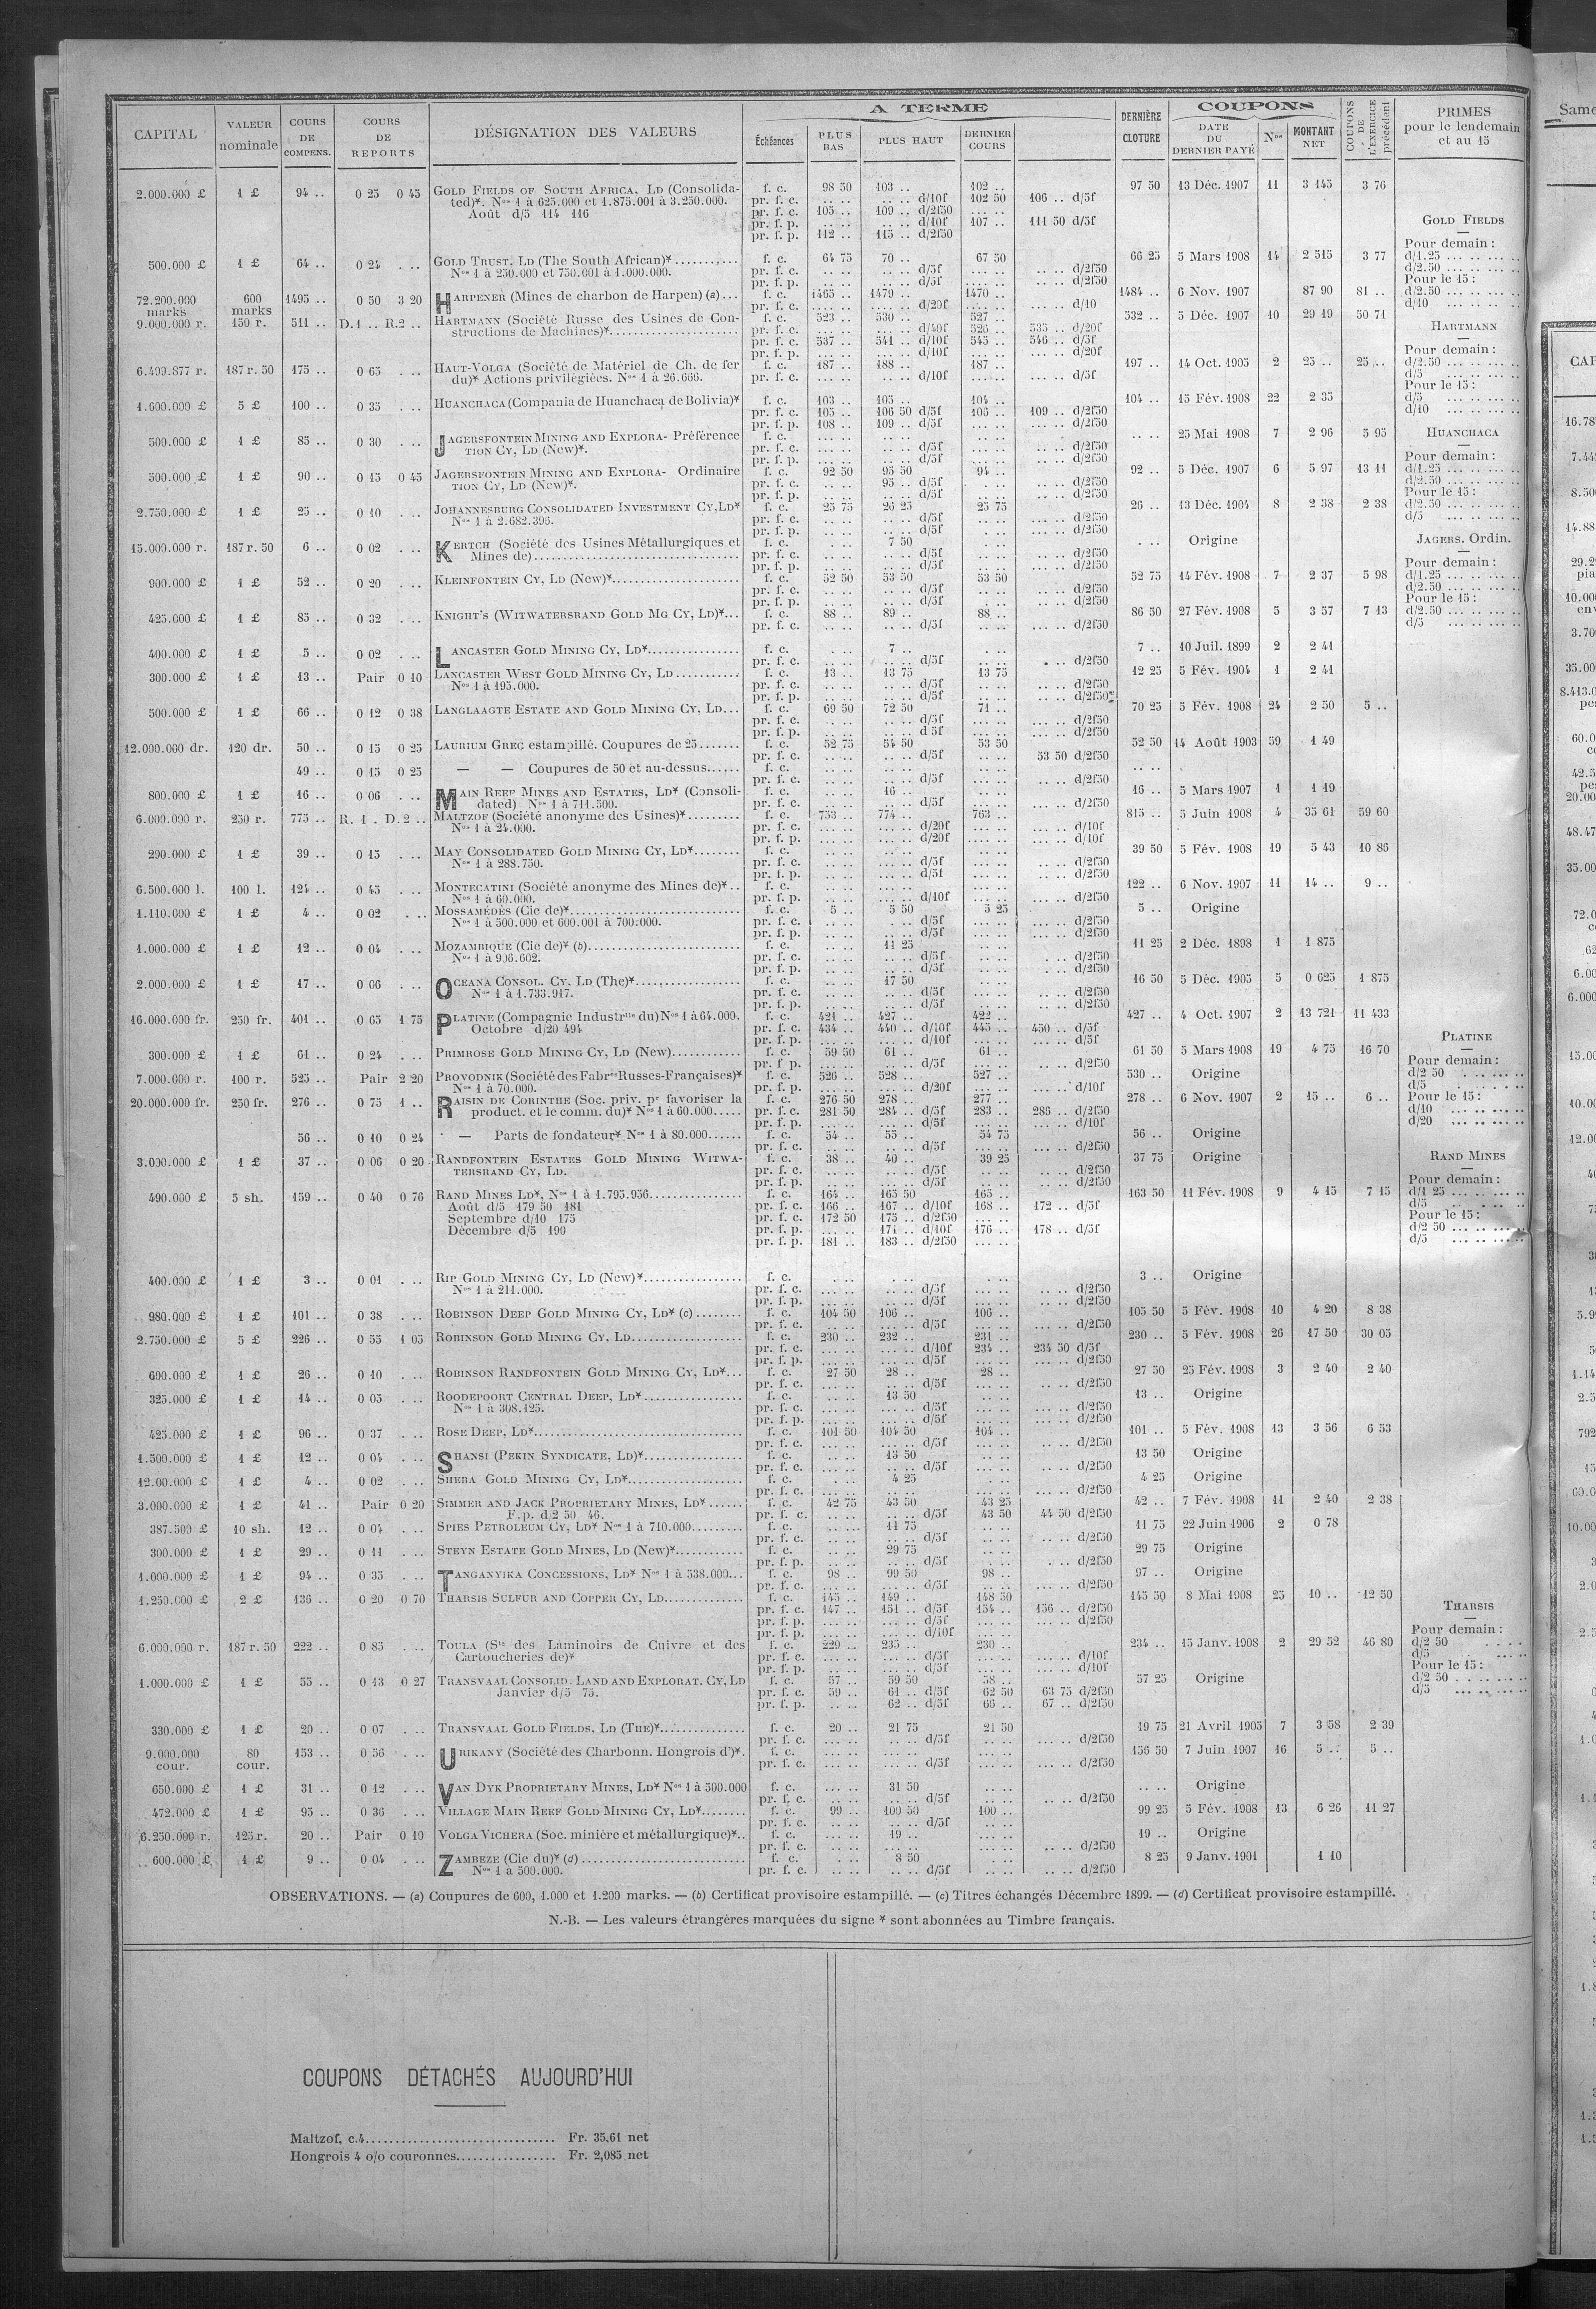 A TERME
COUPONS
CAPITAL
VALEUR nominale
COURS DE COMPENS.
COURS DE REPORTS
DÉSIGNATION DES VALEURS
Échéances
PLUS BAS
PLUS HAUT
DERNIER COURS
DERNIÈRE CLOTURE
DATE DU DERNIER PAYÉ
Nos
MONTANT NET
COUPONS DE L'EXERCICE précédent
PRIMES pour le lendemain et au 15
2.000.000 £ 1 £ 94 .. 0 25 0 45 GOLD FIELDS OF SOUTH AFRICA, LD (Consolida- f. c. 98 50 103 .. 102 .. 97 50 13 Déc. 1907 11 3 145 3 76
ted)*. Nos 1 à 625.000 et 1.875.001 à 3.250.000. pr. f. c. .. .. .. .. d/10f 102 50 106 .. d/5f
Août d/5 114 116 pr. f. c. 105 .. 109 .. d/2f50
pr. f. p. .. .. .. .. d/10f 107 .. 111 50 d/5f
pr. f. p. 112 .. 115 .. d/2f50
GOLD FIELDS
Pour demain :
d/1.25
d/2.50
Pour le 15 :
d/2.50
d/10
500.000 £ 1 £ 64 .. 0 24 . .. GOLD TRUST, LD (The South African)* f. c. 64 75 70 .. 67 50 66 25 5 Mars 1908 14 2 515 3 77
Nos 1 à 250.000 et 750.001 à 1.000.000. pr. f. c. d/5f d/2f50
pr. f. p. d/5f d/2f50
72.200.000 marks 600 marks 1495 .. 0 50 3 20 HARPENER (Mines de charbon de Harpen) (a) f. c. 1465 .. 1479 .. 1470 .. 1484 .. 6 Nov. 1907 87 90 81 ..
pr. f. c. d/20f d/10
9.000.000 r. 150 r. 511 .. D.1 .. R.2 .. HARTMANN (Société Russe des Usines de Con- f. c. 523 .. 530 .. 527 .. 532 .. 5 Déc. 1907 10 29 19 50 71
structions de Machines)* pr. f. c. d/10f 526 .. 535 .. d/20f
pr. f. c. 537 .. 541 .. d/10f 545 .. 546 .. d/5f
pr. f. p. d/10f d/20f
HARTMANN
Pour demain :
d/2.50
d/5
Pour le 15 :
d/5
d/10
6.499.877 r. 187 r. 50 175 .. 0 65 . .. HAUT-VOLGA (Société de Matériel de Ch. de fer f. c. 187 .. 188 .. 187 .. 197 .. 14 Oct. 1905 2 25 .. 25 ..
du)* Actions privilégiées. Nos 1 à 26.666. pr. f. c. d/10f d/5f
1.600.000 £ 5 £ 100 .. 0 35 . .. HUANCHACA (Compania de Huanchaca de Bolivia)* f. c. 103 .. 105 .. 104 .. 104 .. 15 Fév. 1908 22 2 35
pr. f. c. 105 .. 106 50 d/5f 106 .. 109 .. d/2f50
pr. f. p. 108 .. 109 .. d/5f d/2f50
HUANCHACA
Pour demain :
d/1.25
d/2.50
Pour le 15 :
d/2.50
d/5
500.000 £ 1 £ 85 .. 0 30 . .. JAGERSFONTEIN MINING AND EXPLORA- Préférence f. c. .. .. 25 Mai 1908 7 2 96 5 95
TION CY, LD (New)*. pr. f. c. d/5f d/2f50
pr. f. p. d/5f d/2f50
500.000 £ 1 £ 90 .. 0 15 0 45 JAGERSFONTEIN MINING AND EXPLORA- Ordinaire f. c. 92 50 95 50 94 .. 92 .. 5 Déc. 1907 6 5 97 13 11
TION CY, LD (New)*. pr. f. c. 95 .. d/5f d/2f50
pr. f. p. d/5f d/2f50
2.750.000 £ 1 £ 25 .. 0 10 . .. JOHANNESBURG CONSOLIDATED INVESTMENT CY, LD* f. c. 25 75 26 25 25 75 26 .. 13 Déc. 1904 8 2 38 2 38
Nos 1 à 2.682.396. pr. f. c. d/5f d/2f50
pr. f. p. d/5f d/2f50
JAGERS. Ordin.
Pour demain :
d/1.25
d/2.50
Pour le 15 :
d/2.50
d/5
15.000.000 r. 187 r. 50 6 .. 0 02 . .. KERTCH (Société des Usines Métallurgiques et f. c. 7 50 . .. Origine
Mines de) pr. f. c. d/5f d/2f50
pr. f. p. d/5f d/2f50
900.000 £ 1 £ 52 .. 0 20 . .. KLEINFONTEIN CY, LD (New)* f. c. 52 50 53 50 53 50 52 75 14 Fév. 1908 7 2 37 5 98
pr. f. c. d/5f d/2f50
pr. f. p. d/5f d/2f50
425.000 £ 1 £ 85 .. 0 32 . .. KNIGHT'S (WITWATERSRAND GOLD MG CY, LD)* f. c. 88 .. 89 .. 88 .. 86 50 27 Fév. 1908 5 3 57 7 13
pr. f. c. d/5f d/2f50
400.000 £ 1 £ 5 .. 0 02 . .. LANCASTER GOLD MINING CY, LD* f. c. 7 .. 7 .. 10 Juil. 1899 2 2 41
pr. f. c. d/5f d/2f50
300.000 £ 1 £ 13 .. Pair 0 10 LANCASTER WEST GOLD MINING CY, LD f. c. 13 .. 13 75 13 75 12 25 5 Fév. 1904 1 2 41
Nos 1 à 195.000. pr. f. c. d/5f d/2f50
pr. f. p. d/5f d/2f50
500.000 £ 1 £ 66 .. 0 12 0 38 LANGLAAGTE ESTATE AND GOLD MINING CY, LD f. c. 69 50 72 50 71 .. 70 25 5 Fév. 1908 24 2 50 5 ..
pr. f. c. d/5f d/2f50
pr. f. p. d 5f d/2f50
12.000.000 dr. 120 dr. 50 .. 0 15 0 25 LAURIUM GREC estampillé. Coupures de 25 f. c. 52 75 54 50 53 50 52 50 14 Août 1903 59 1 49
pr. f. c. d/5f 53 50 d/2f50
49 .. 0 15 0 25 — — Coupures de 50 et au-dessus f. c. .. ..
pr. f. c. d/5f d/2f50
800.000 £ 1 £ 16 .. 0 06 . .. MAIN REEF MINES AND ESTATES, LD* (Consoli- f. c. 16 .. 16 .. 5 Mars 1907 1 1 19
dated) Nos 1 à 711.500. pr. f. c. d/5f d/2f50
6.000.000 r. 250 r. 775 .. R. 1 . D.2 .. MALTZOF (Société anonyme des Usines)* f. c. 753 .. 774 .. 763 .. 815 .. 5 Juin 1908 4 35 61 59 60
Nos 1 à 24.000. pr. f. c. d/20f d/10f
pr. f. p. d/20f d/10f
290.000 £ 1 £ 39 .. 0 15 . .. MAY CONSOLIDATED GOLD MINING CY, LD* f. c. 39 50 5 Fév. 1908 19 5 43 10 86
Nos 1 à 288.750. pr. f. c. d/5f d/2f50
pr. f. p. d/5f d/2f50
6.500.000 l. 100 l. 124 .. 0 45 . .. MONTECATINI (Société anonyme des Mines de)* f. c. 122 .. 6 Nov. 1907 11 14 .. 9 ..
Nos 1 à 60.000. pr. f. c. d/10f d/2f50
1.110.000 £ 1 £ 4 .. 0 02 . .. MOSSAMÉDÈS (Cie de)* f. c. 5 .. 5 50 5 25 5 .. Origine
Nos 1 à 500.000 et 600.001 à 700.000. pr. f. c. d/5f d/2f50
pr. f. p. d/5f d/2f50
1.000.000 £ 1 £ 12 .. 0 04 . .. MOZAMBIQUE (Cie de)* (b) f. c. 11 25 11 25 2 Déc. 1898 1 1 875
Nos 1 à 996.602. pr. f. c. d/5f d/2f50
pr. f. p. d/5f d/2f50
2.000.000 £ 1 £ 17 .. 0 06 . .. OCEANA CONSOL. CY, LD (The)* f. c. 17 50 16 50 5 Déc. 1905 5 0 625 1 875
Nos 1 à 1.733.917. pr. f. c. d/5f d/2f50
pr. f. p. d/5f d/2f50
16.000.000 fr. 250 fr. 401 .. 0 65 1 75 PLATINE (Compagnie Industrlle du) Nos 1 à 64.000. f. c. 421 .. 427 .. 422 .. 427 .. 4 Oct. 1907 2 13 721 11 433
Octobre d/20 494 pr. f. c. 434 .. 440 .. d/10f 445 .. 450 .. d/5f
pr. f. p. d/10f d/5f
PLATINE
Pour demain :
d/2 50
d/5
Pour le 15 :
d/10
d/20
300.000 £ 1 £ 61 .. 0 24 . .. PRIMROSE GOLD MINING CY, LD (New) f. c. 59 50 61 .. 61 .. 61 50 5 Mars 1908 19 4 75 16 70
pr. f p. d/5f d/2f50
7.000.000 r. 100 r. 525 .. Pair 2 20 PROVODNIK (Société des Fabres Russes-Françaises)* f. c. 526 .. 528 .. 527 .. 530 .. Origine
Nos 1 à 70.000. pr. f. p. d/20f d/10f
20.000.000 fr. 250 fr. 276 .. 0 75 1 .. RAISIN DE CORINTHE (Soc. priv. pr favoriser la f. c. 276 50 278 .. 277 .. 278 .. 6 Nov. 1907 2 15 .. 6 ..
product. et le comm. du)* Nos 1 à 60.000 pr. f. c. 281 50 284 .. d/5f 283 .. 286 .. d/2f50
pr. f. p. d/5f d/10f
56 .. 0 10 0 24 — Parts de fondateur* Nos 1 à 80.000 f. c. 54 .. 55 .. 54 75 56 .. Origine
pr. f. c. d/5f d/2f50
3.000.000 £ 1 £ 37 .. 0 06 0 20 RANDFONTEIN ESTATES GOLD MINING WITWA- f. c. 38 .. 40 .. 39 25 37 75 Origine
TERSRAND CY, LD. pr. f. c. d/5f d/2f50
pr. f. p. d/5f d/2f50
490.000 £ 5 sh. 159 .. 0 40 0 76 RAND MINES LD*, Nos 1 à 1.795.956 f. c. 164 .. 165 50 165 .. 163 50 11 Fév. 1908 9 4 15 7 15
Août d/5 179 50 181 pr. f. c. 166 .. 167 .. d/10f 168 .. 172 .. d/5f
Septembre d/10 175 pr. f. c. 172 50 175 .. d/2f50
Décembre d/5 190 pr. f. p. 171 .. d/10f 176 .. 178 .. d/5f
pr. f. p. 181 .. 183 .. d/2f50
RAND MINES
Pour demain :
d/1 25
d/5
Pour le 15 :
d/2 50
d/5
400.000 £ 1 £ 3 .. 0 01 . .. RIP GOLD MINING CY, LD (New)* f. c. 3 .. Origine
Nos 1 à 211.000. pr. f. c. d/5f d/2f50
pr. f. p. d/5f d/2f50
980.000 £ 1 £ 101 .. 0 38 . .. ROBINSON DEEP GOLD MINING CY, LD* (c) f. c. 104 50 106 .. 106 .. 105 50 5 Fév. 1908 10 4 20 8 38
pr. f. c. d/5f d/2f50
2.750.000 £ 5 £ 226 .. 0 55 1 05 ROBINSON GOLD MINING CY, LD f. c. 230 .. 232 .. 231 .. 230 .. 5 Fév. 1908 26 17 50 30 05
pr. f. c. d/10f 234 .. 234 50 d/5f
pr. f. p. d/5f d/2f50
600.000 £ 1 £ 26 .. 0 10 . .. ROBINSON RANDFONTEIN GOLD MINING CY, LD* f. c. 27 50 28 .. 28 .. 27 50 25 Fév. 1908 3 2 40 2 40
pr. f. c. d/5f d/2f50
325.000 £ 1 £ 14 .. 0 05 . .. ROODEPOORT CENTRAL DEEP, LD* f. c. 13 50 13 .. Origine
Nos 1 à 308.125. pr. f. c. d/5f d/2f50
pr. f. p. d/5f d/2f50
425.000 £ 1 £ 96 .. 0 37 . .. ROSE DEEP, LD* f. c. 101 50 104 50 104 .. 101 .. 5 Fév. 1908 13 3 56 6 53
pr. f. c. d/5f d/2f50
1.500.000 £ 1 £ 12 .. 0 04 . .. SHANSI (PEKIN SYNDICATE, LD)* f. c. 13 50 13 50 Origine
pr. f. c. d/5f d/2f50
12.00.000 £ 1 £ 4 .. 0 02 . .. SHEBA GOLD MINING CY, LD* f. c. 4 25 4 25 Origine
pr. f. c. d/2f50
3.000.000 £ 1 £ 41 .. Pair 0 20 SIMMER AND JACK PROPRIETARY MINES, LD* f. c. 42 75 43 50 43 25 42 .. 7 Fév. 1908 11 2 40 2 38
F.p. d/2 50 46. pr. f. c. d/5f 43 50 44 50 d/2f50
387.500 £ 10 sh. 12 .. 0 04 . .. SPIES PETROLEUM CY, LD* Nos 1 à 710.000 f. c. 11 75 11 75 22 Juin 1906 2 0 78
pr. f. c. d/5f d/2f50
300.000 £ 1 £ 29 .. 0 11 . .. STEYN ESTATE GOLD MINES, LD (New)* f. c. 29 75 29 75 Origine
pr. f. p. d/5f d/2f50
1.000.000 £ 1 £ 94 .. 0 35 . .. TANGANYIKA CONCESSIONS, LD* Nos 1 à 538.000 f. c. 98 .. 99 50 98 .. 97 .. Origine
pr. f. c. d/5f d/2f50
1.250.000 £ 2 £ 136 .. 0 20 0 70 THARSIS SULFUR AND COPPER CY, LD f. c. 145 .. 149 .. 148 50 145 50 8 Mai 1908 25 10 .. 12 50
pr. f. c. 147 .. 151 .. d/5f 154 .. 156 .. d/2f50
pr. f. p. d/5f d/2f50
pr. f. p. d/10f
THARSIS
Pour demain :
d/2 50
d/5
Pour le 15 :
d/2 50
d/5
6.000.000 r. 187 r. 50 222 .. 0 85 . .. TOULA (Sté des Laminoirs de Cuivre et des f. c. 229 .. 235 .. 230 .. 234 .. 15 Janv. 1908 2 29 52 46 80
Cartoucheries de)* pr. f. c. d/5f d/10f
pr. f. p. d/5f d/10f
1.000.000 £ 1 £ 55 .. 0 13 0 27 TRANSVAAL CONSOLID. LAND AND EXPLORAT. CY, LD f. c. 57 .. 59 50 58 .. 57 25 Origine
Janvier d/5 75. pr. f. c. 59 .. 61 .. d/5f 62 50 63 75 d/2f50
pr. f. p. 62 .. d/5f 66 .. 67 .. d/2f50
330.000 £ 1 £ 20 .. 0 07 . .. TRANSVAAL GOLD FIELDS, LD (THE)* f. c. 20 .. 21 75 21 50 19 75 21 Avril 1905 7 3 58 2 39
pr. f. c. d/5f d/2f50
9.000.000 cour. 80 cour. 153 .. 0 56 . .. URIKANY (Société des Charbonn. Hongrois d')*. f. c. 156 50 7 Juin 1907 16 5 .. 5 ..
pr. f. c. d/5f d/2f50
650.000 £ 1 £ 31 .. 0 12 . .. VAN DYK PROPRIETARY MINES, LD* Nos 1 à 500.000 f. c. 31 50 .. .. Origine
pr. f. c. d/5f d/2f50
472.000 £ 1 £ 95 .. 0 36 . .. VILLAGE MAIN REEF GOLD MINING CY, LD* f. c. 99 .. 100 50 100 .. 99 25 5 Fév. 1908 13 6 26 11 27
pr. f. c. d/5f
6.250.000 r. 125 r. 20 .. Pair 0 10 VOLGA VICHERA (Soc. minière et métallurgique)* f. c. 19 .. 19 .. Origine
pr. f. c. d/2f50
600.000 £ 1 £ 9 .. 0 04 . .. ZAMBEZE (Cie du)* (d) f. c. 8 50 8 25 9 Janv. 1901 1 10
Nos 1 à 500.000. pr. f. c. d/5f d/2f50
OBSERVATIONS. — (a) Coupures de 600, 1.000 et 1.200 marks. — (b) Certificat provisoire estampillé. — (c) Titres échangés Décembre 1899. — (d) Certificat provisoire estampillé.
N.-B. — Les valeurs étrangères marquées du signe * sont abonnées au Timbre français.
COUPONS DÉTACHÉS AUJOURD'HUI
Maltzof, c.4 Fr. 35,61 net
Hongrois 4 o/o couronnes Fr. 2,085 net
Same